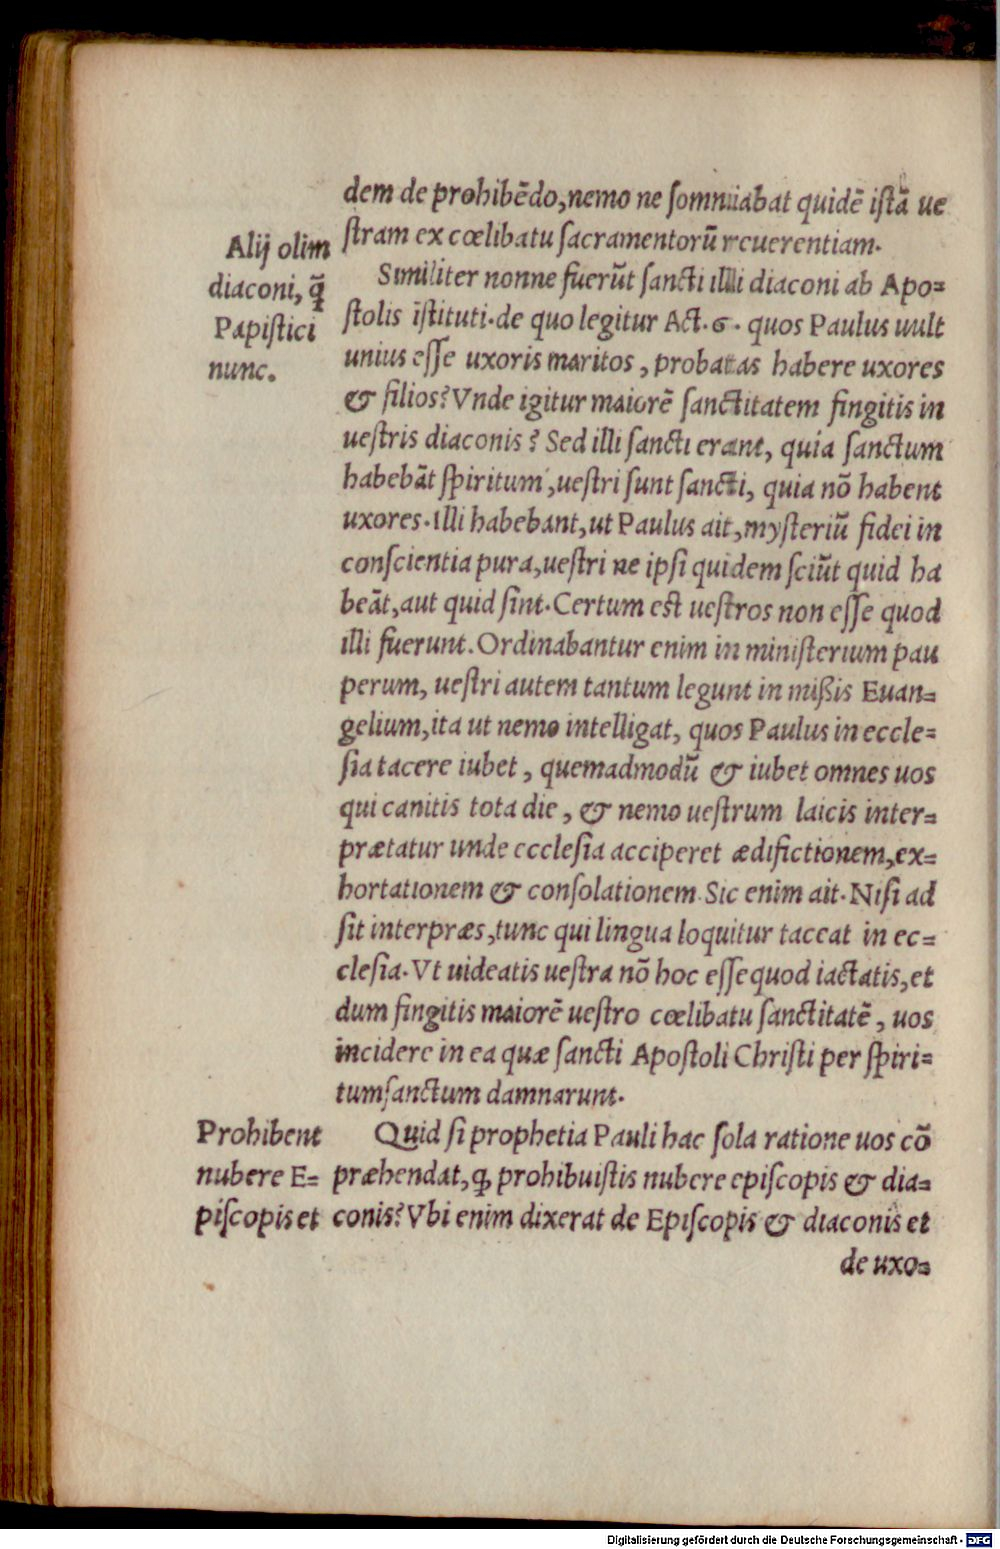 dem de prohibēdo, nemo ne somniabat quidē istā ue
stram ex cœlibatu sacramentorū reuerentiam.
Alij olim
diaconi, q̄
Papistici
nunc.
Similiter nonne fuerūt sancti illi diaconi ab Apo=
stolis īstituti. de quo legitur Act. 6. quos Paulus uult
unius esse uxoris maritos, probatas habere uxores
& filios? Vnde igitur maiorē sanctitatem fingitis in
uestris diaconis? Sed illi sancti erant, quia sanctum
habebāt spiritum, uestri sunt sancti, quia nō habent
uxores. Illi habebant, ut Paulus ait, mysteriū fidei in
conscientia pura, uestri ne ipsi quidem sciūt quid ha
beāt, aut quid sint. Certum est uestros non esse quod
illi fuerunt. Ordinabantur enim in ministerium pau
perum, uestri autem tantum legunt in mißis Euan=
gelium, ita ut nemo intelligat, quos Paulus in eccle=
sia tacere iubet, quemadmodū & iubet omnes uos
qui canitis tota die, & nemo uestrum laicis inter=
prætatur unde ecclesia acciperet ædifictionem, ex=
hortationem & consolationem. Sic enim ait. Nisi ad
sit interpræs, tunc qui lingua loquitur taceat in ec=
clesia. Vt uideatis uestra nō hoc esse quod iactatis, et
dum fingitis maiorē uestro cœlibatu sanctitatē, uos
incidere in ea quæ sancti Apostoli Christi per spiri=
tumsanctum damnarunt.
Prohibent
nubere E=
piscopis et
Quid si prophetia Pauli hac sola ratione uos cō
præhendat, ꝙ prohibuistis nubere episcopis & dia=
conis? Vbi enim dixerat de Episcopis & diaconis et
de uxo=
Digitalisierung gefördert durch die Deutsche Forschungsgemeinschaft - DFG